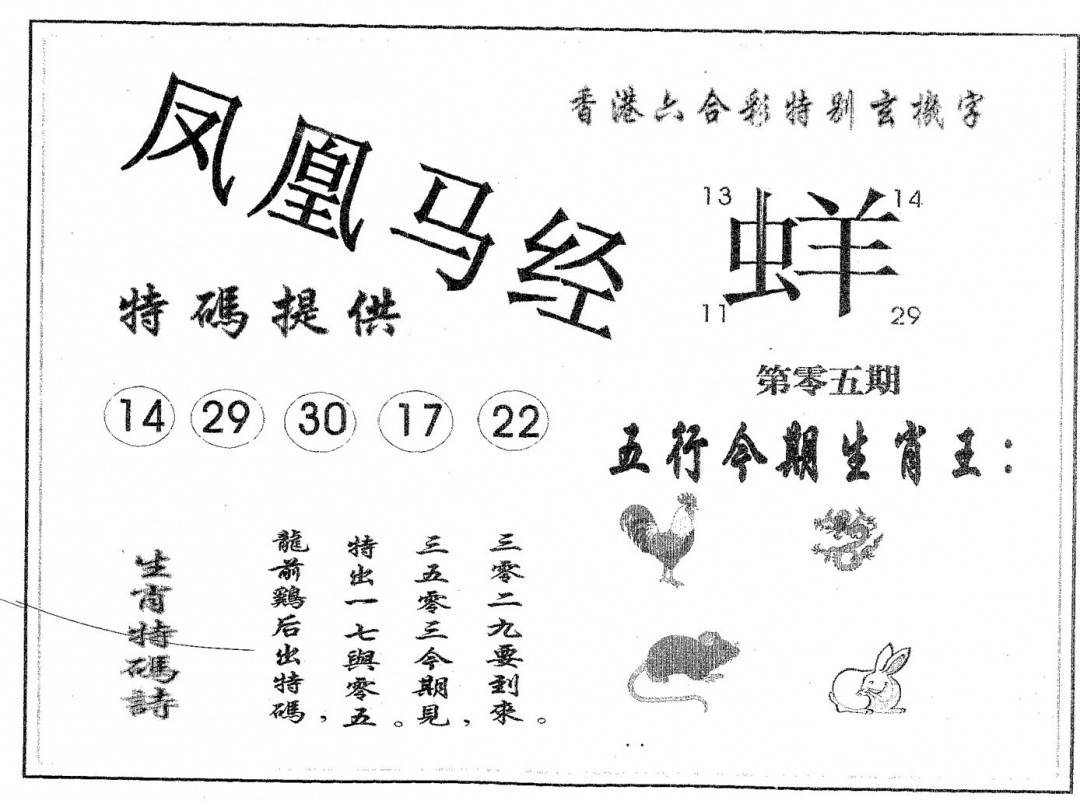 凤凰马经
香港六合彩特别玄機字
13 14
蛘
11 29
特碼提供
第零五期
14 29 30 17 22
五行今期生肖王：
生肖特碼詩
龍前鷄后出特碼，
特出一七與零五。
三五零三今期見，
三零二九要到來。